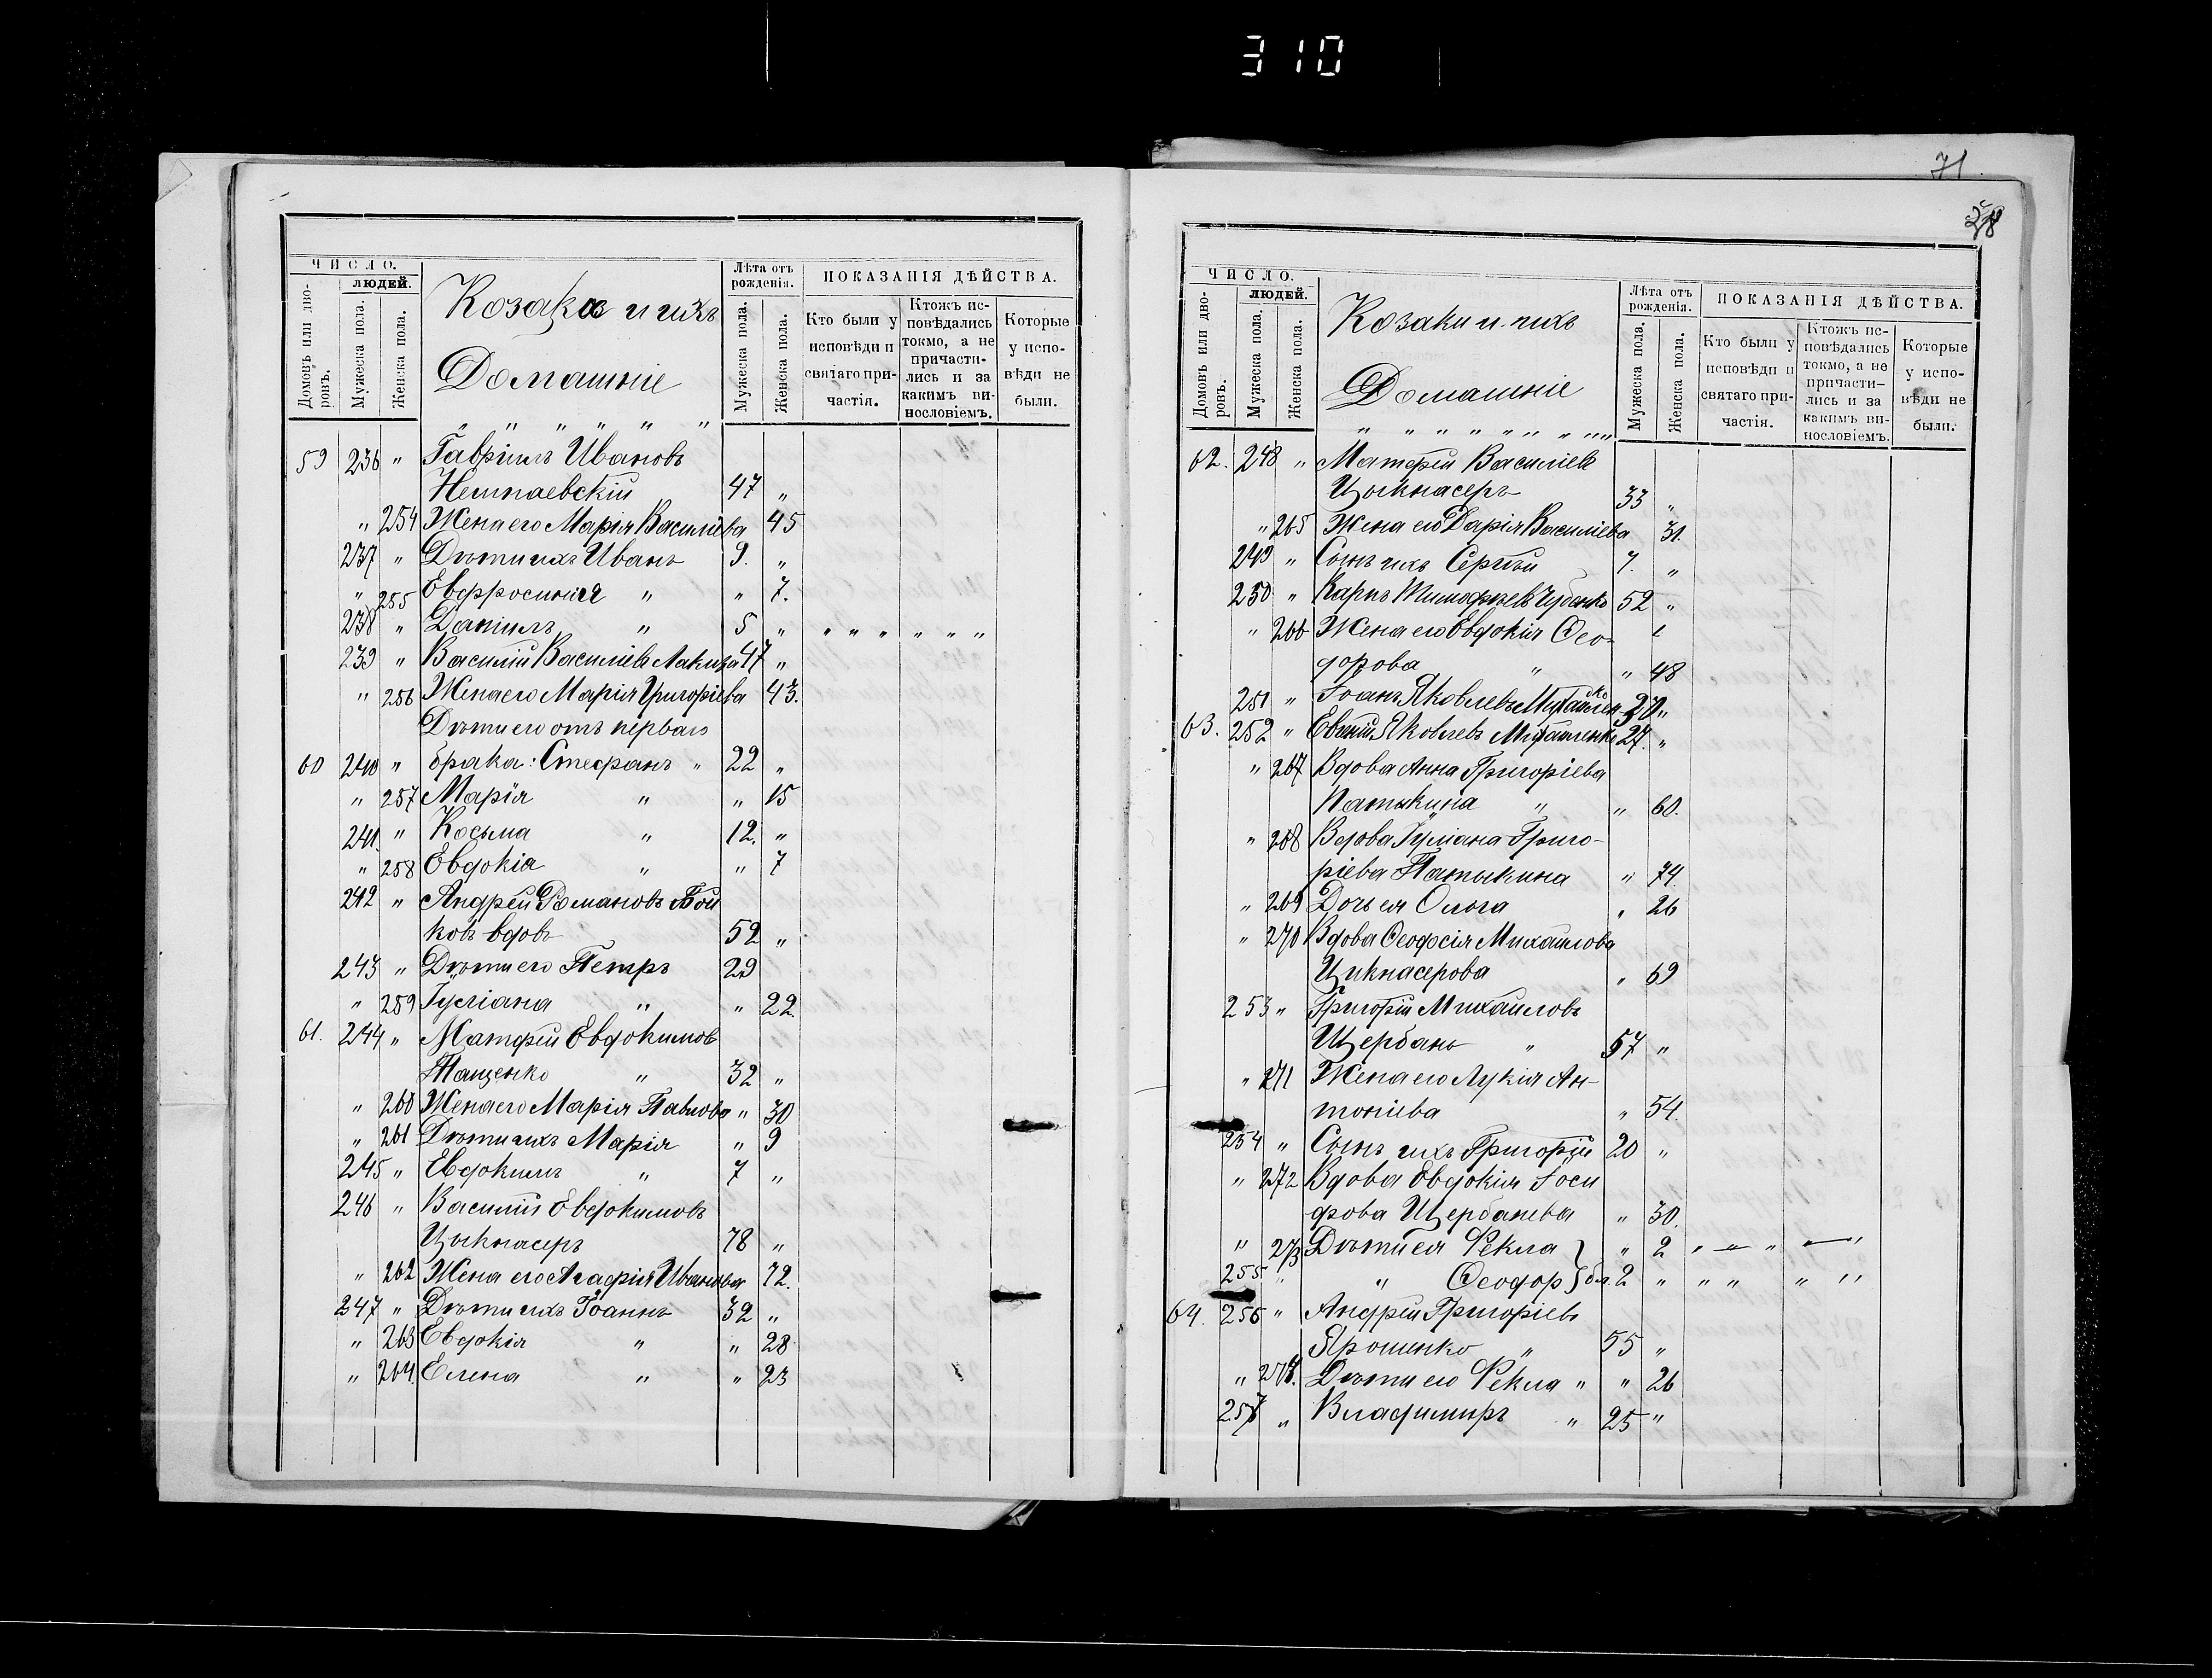 310
ЧИСЛО.
ЛЮДЕЙ.
Домовъ или дворовъ.
Мужеска пола.
Женска пола.
Козаки и ихъ
Домашніе
Лѣта отъ рожденія.
Мужеска пола.
Женска пола.
ПОКАЗАНІЯ ДѢЙСТВА.
Кто были у исповѣди и святаго причастія.
Ктожъ исповѣдались токмо, а не причастились и за какимъ винословіемъ.
Которые у исповѣди не были.
" " " " " "
59 236 " Гавріилъ Ивановъ
Нештаевскій 47 "
" 254 Жена его Марія Василіева 45
237 " Дѣти ихъ Иванъ 9. "
" 255 Евфросинія " " 7.
238 " Даніилъ " 5 " " " " " " "
239 " Василій Василіевъ Лакиза 47 "
" 256 Жена его Марія Григоріева 43.
Дѣти его отъ перваго
60 240 " брака: Стефанъ " 22 "
" 257 Марія " " 15
241. " Косьма " 12. "
" 258 Евдокія " " 7
242 " Андрей Романовъ Бой
ковъ вдовъ 52 "
243 " Дѣти его Петръ 29
" 259 Іуліана " " 22.
61. 244 " Матфей Евдокимовъ
Тащенко " 32 "
" 260 Жена его Марія Павлова " 30
" 261 Дѣти ихъ Марія " 9
245 " Евдокимъ " 7 "
246 " Василій Евдокимовъ
Цыкнасеръ 78 "
" 262 Жена его Агафія Иванова 72.
247 " Дѣти ихъ Іоаннъ 32 "
" 263 Евдокія " " 28
" 264 Елена " " 23
71
ЧИСЛО.
ЛЮДЕЙ.
Домовъ или дворовъ.
Мужеска пола.
Женска пола.
Козаки и ихъ
Домашніе
Лѣта отъ рожденія.
Мужеска пола.
Женска пола.
ПОКАЗАНІЯ ДѢЙСТВА.
Кто были у исповѣди и святаго причастія.
Ктожъ исповѣдались токмо, а не причастились и за какимъ винословіемъ.
Которые у исповѣди не были.
" " " " " " " " "
62. 248 " Матфей Василіевъ
Цыкнасеръ 33 "
" 265 Жена его Дарія Василіева 31.
249 " Сынъ ихъ Сергѣй 7. "
250 " Карпъ Тимофѣевъ Чубенко 52 "
" 266 Жена его Евдокія Ѳео-
дорова " " 48
251 " Іоанъ Яковлевъ "
63. 252 " Евгеній Яковлевъ 27. "
" 267 Вдова Анна Григоріева
Патыкина " " 60.
" 268 Вдова Іуліана Григо-
ріева Патыкина " 74.
" 269 Дочь ея Ольга " 26
" 270 Вдова Ѳеофсія Михайлова
Цикнасерова " 69
253 " Григорій Михайловъ
Щербань " 57 "
" 271 Жена его Лукія Ан-
тоніева " 54.
254 " Сынъ ихъ Григорій 20 "
" 272 Вдова Евдокія Іоси
фова Щербанева " 30.
" 273 Дѣти ея Ѳекла } " 2 " — " — "
255 " " Ѳеодор } бл. 2 " " " " "
64. 256 " Андрей Григоріевъ
Ярошенко " 55 "
" 274. Дѣти его Ѳекла " " 26
257 " Владимиръ " 25 "